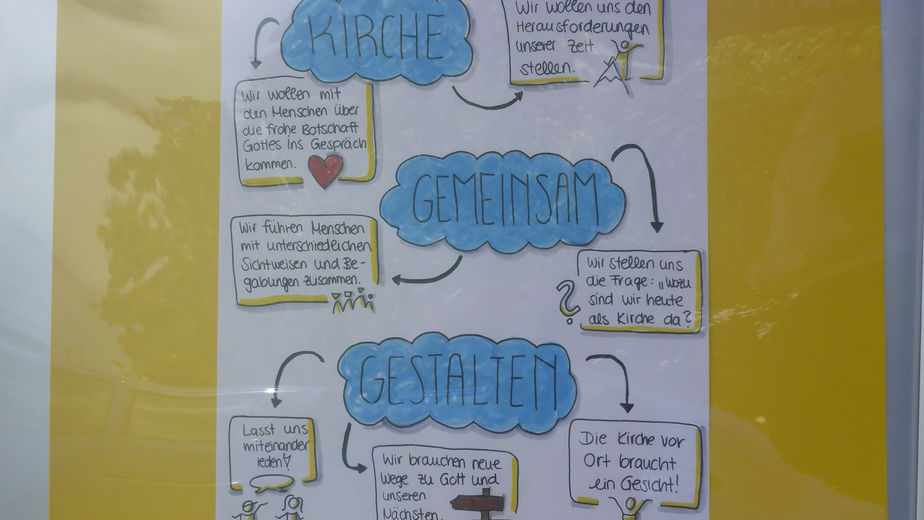 KIRCHE
Wir wollen uns den
Herausforderungen
unserer Zeit
stellen.
Wir wollen mit
den Menschen über
die frohe Botschaft
Gottes ins Gespräch
kommen.
GEMEINSAM
Wir führen Menschen
mit unterschiedlichen
Sichtweisen und Be-
gabungen zusammen.
Wir stellen uns
die Frage: „Wozu
sind wir heute
als Kirche da?
GESTALTEN
Lasst uns
miteinander
reden!
Wir brauchen neue
Wege zu Gott und
unseren
Nächsten.
Die Kirche vor
Ort braucht
ein Gesicht!